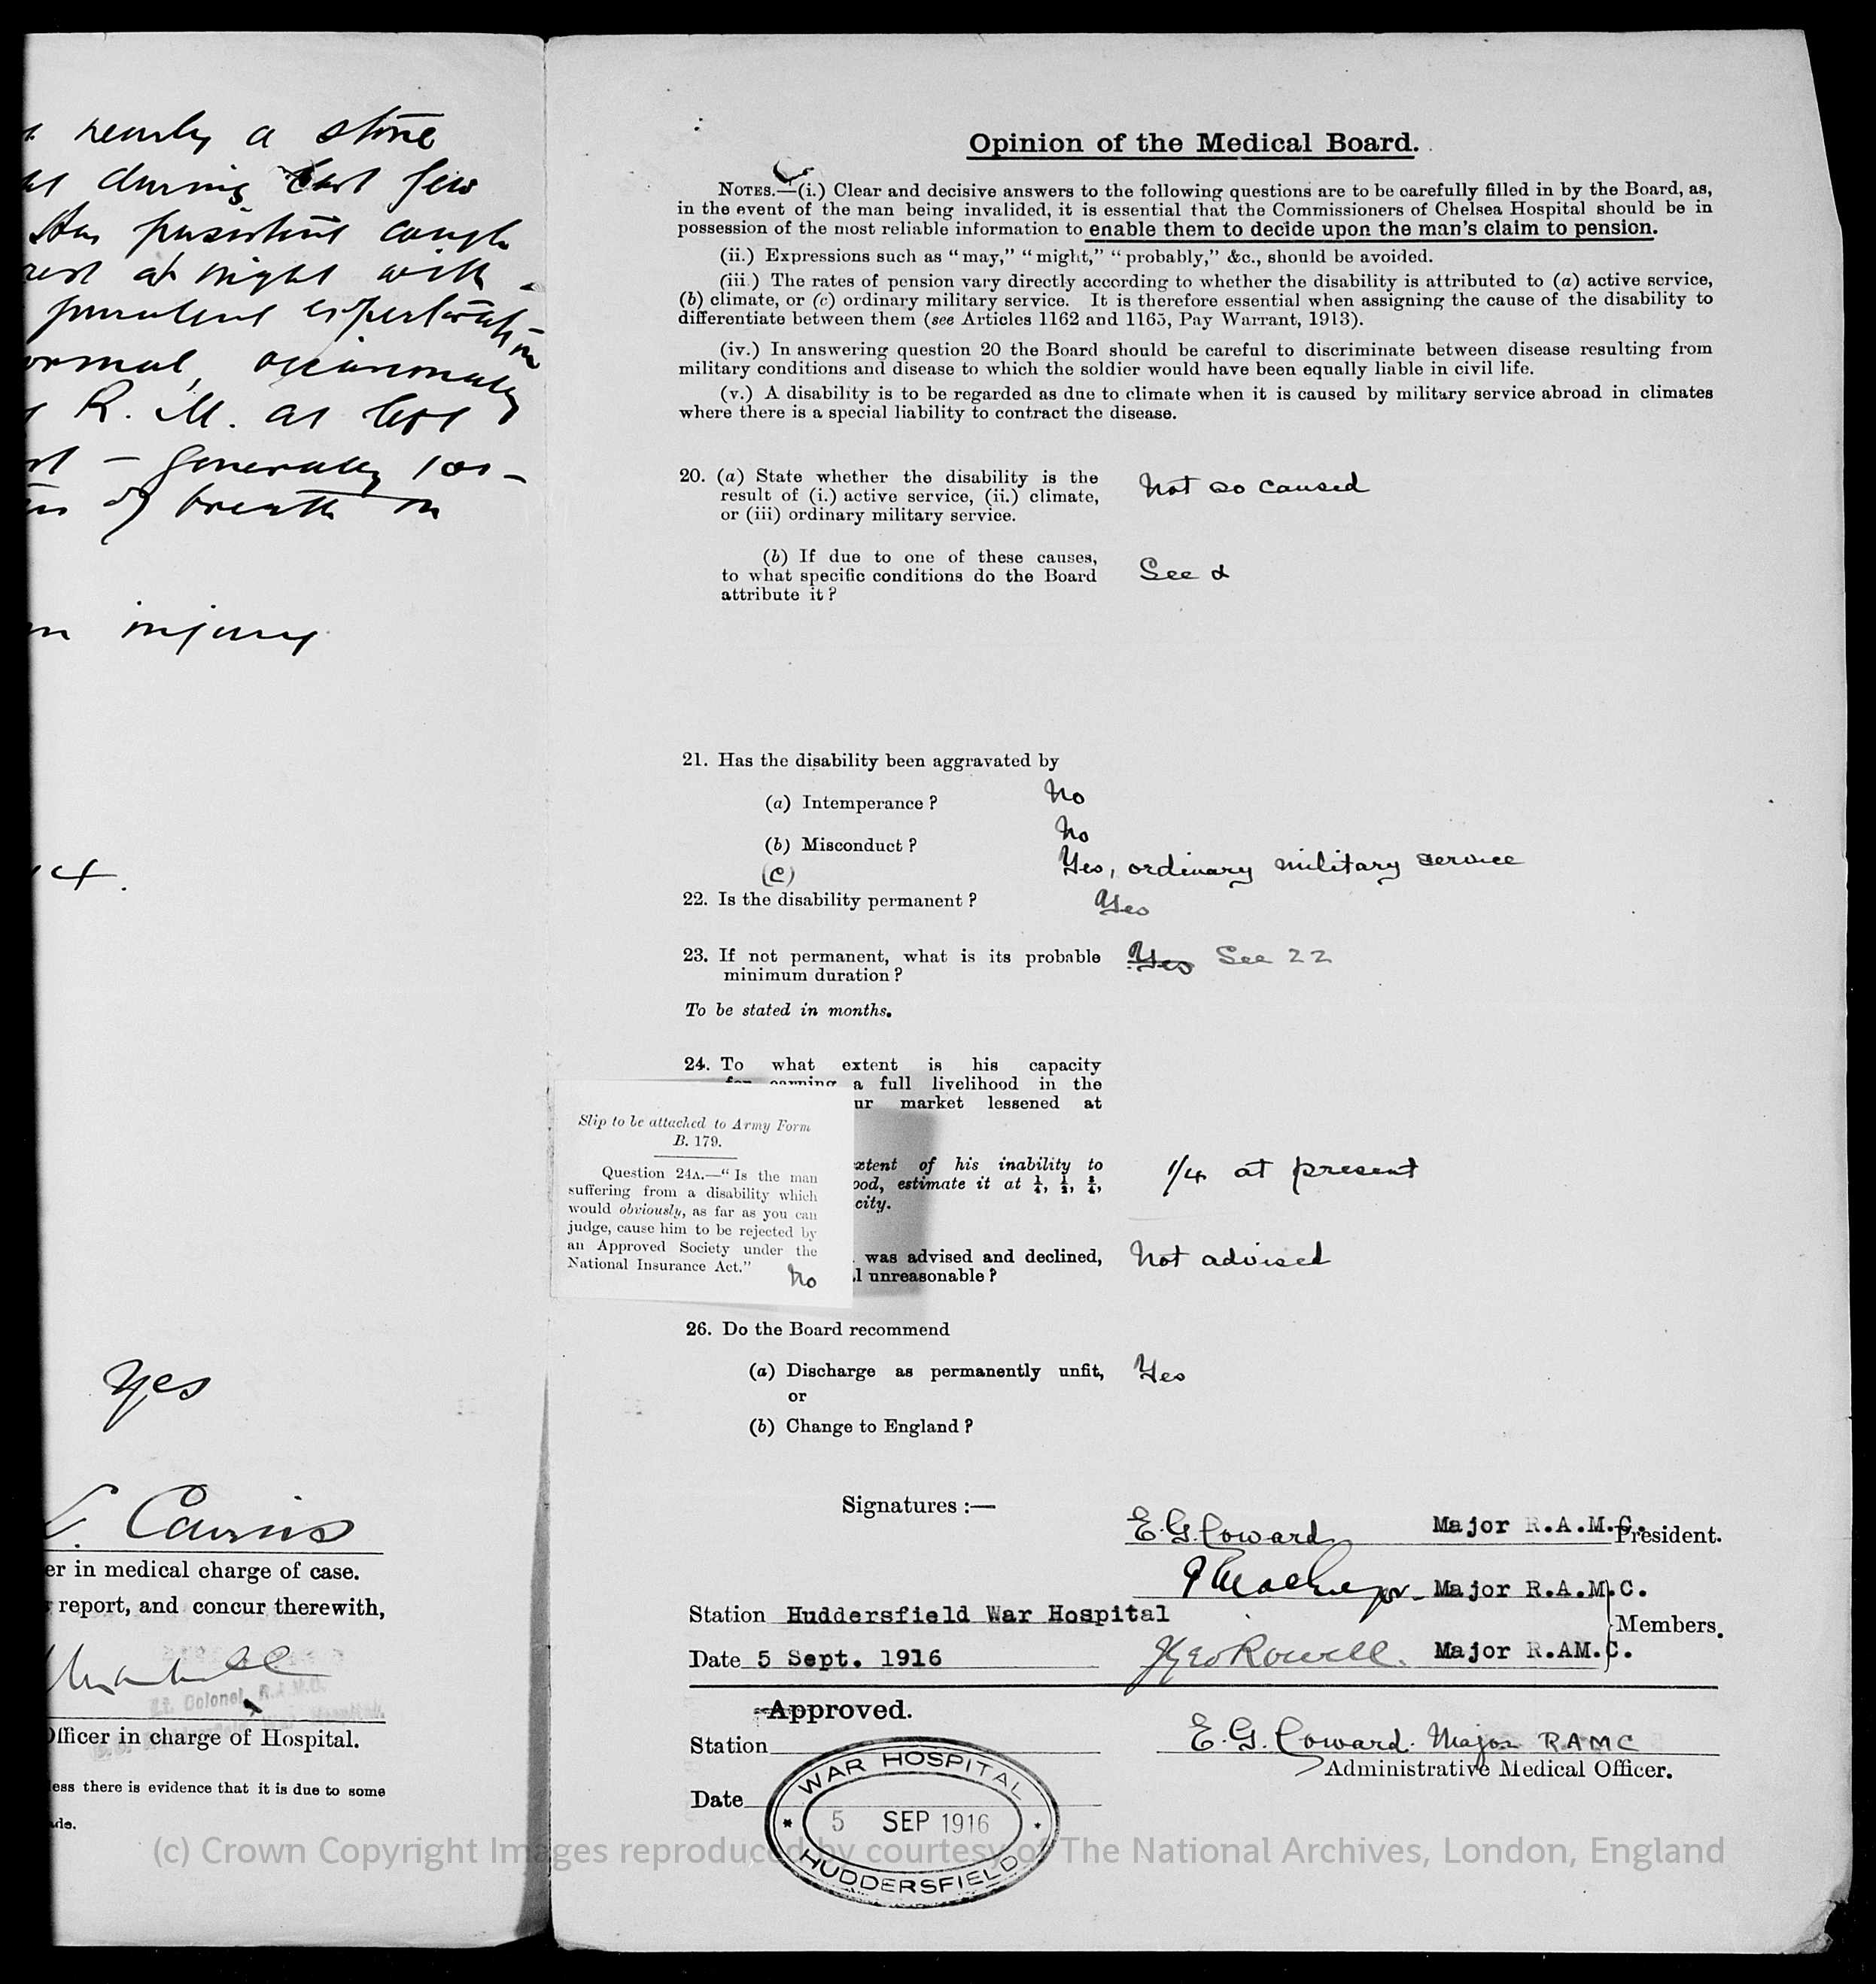 nearly a stone
during last few
Has persistent cough
rest at night with
purulent expectoration
normal, occasionally
R. M. at left
– generally
of breath on
injury
14.
Yes
Cairns
er in medical charge of case.
report, and concur therewith,
Lt. Colonel, R.A.M.C.
Officer in charge of Hospital.
ess there is evidence that it is due to some
ade.
Opinion of the Medical Board.
NOTES.—(i.) Clear and decisive answers to the following questions are to be carefully filled in by the Board, as,
in the event of the man being invalided, it is essential that the Commissioners of Chelsea Hospital should be in
possession of the most reliable information to enable them to decide upon the man's claim to pension.
(ii.) Expressions such as "may," "might," "probably," &c., should be avoided.
(iii.) The rates of pension vary directly according to whether the disability is attributed to (a) active service,
(b) climate, or (c) ordinary military service. It is therefore essential when assigning the cause of the disability to
differentiate between them (see Articles 1162 and 1165, Pay Warrant, 1913).
(iv.) In answering question 20 the Board should be careful to discriminate between disease resulting from
military conditions and disease to which the soldier would have been equally liable in civil life.
(v.) A disability is to be regarded as due to climate when it is caused by military service abroad in climates
where there is a special liability to contract the disease.
20. (a) State whether the disability is the Not so caused
result of (i.) active service, (ii.) climate,
or (iii) ordinary military service.
(b) If due to one of these causes, See a
to what specific conditions do the Board
attribute it?
21. Has the disability been aggravated by
(a) Intemperance? No
(b) Misconduct? No
(c) Yes, ordinary military service
22. Is the disability permanent? Yes
23. If not permanent, what is its probable Yes See 22
minimum duration?
To be stated in months.
24. To what extent is his capacity
for earning a full livelihood in the
ur market lessened at
Slip to be attached to Army Form
B. 179.
Question 24A.—"Is the man
suffering from a disability which
would obviously, as far as you can
judge, cause him to be rejected by
an Approved Society under the
National Insurance Act."
No
xtent of his inability to
ood, estimate it at ¼, ½, ¾, 1/4 at present
city.
was advised and declined, Not advised
l unreasonable?
26. Do the Board recommend
(a) Discharge as permanently unfit, Yes
or
(b) Change to England?
Signatures:—
E. G. Coward Major R.A.M.C. President.
Major R.A.M.C.
Station Huddersfield War Hospital
Members.
Date 5 Sept. 1916 Geo Rowell. Major R.AM.C.
Approved.
Station E. G. Coward. Major RAMC
Administrative Medical Officer.
Date
WAR HOSPITAL
5 SEP 1916
HUDDERSFIELD
(c) Crown Copyright Images reproduced by courtesy of The National Archives, London, England